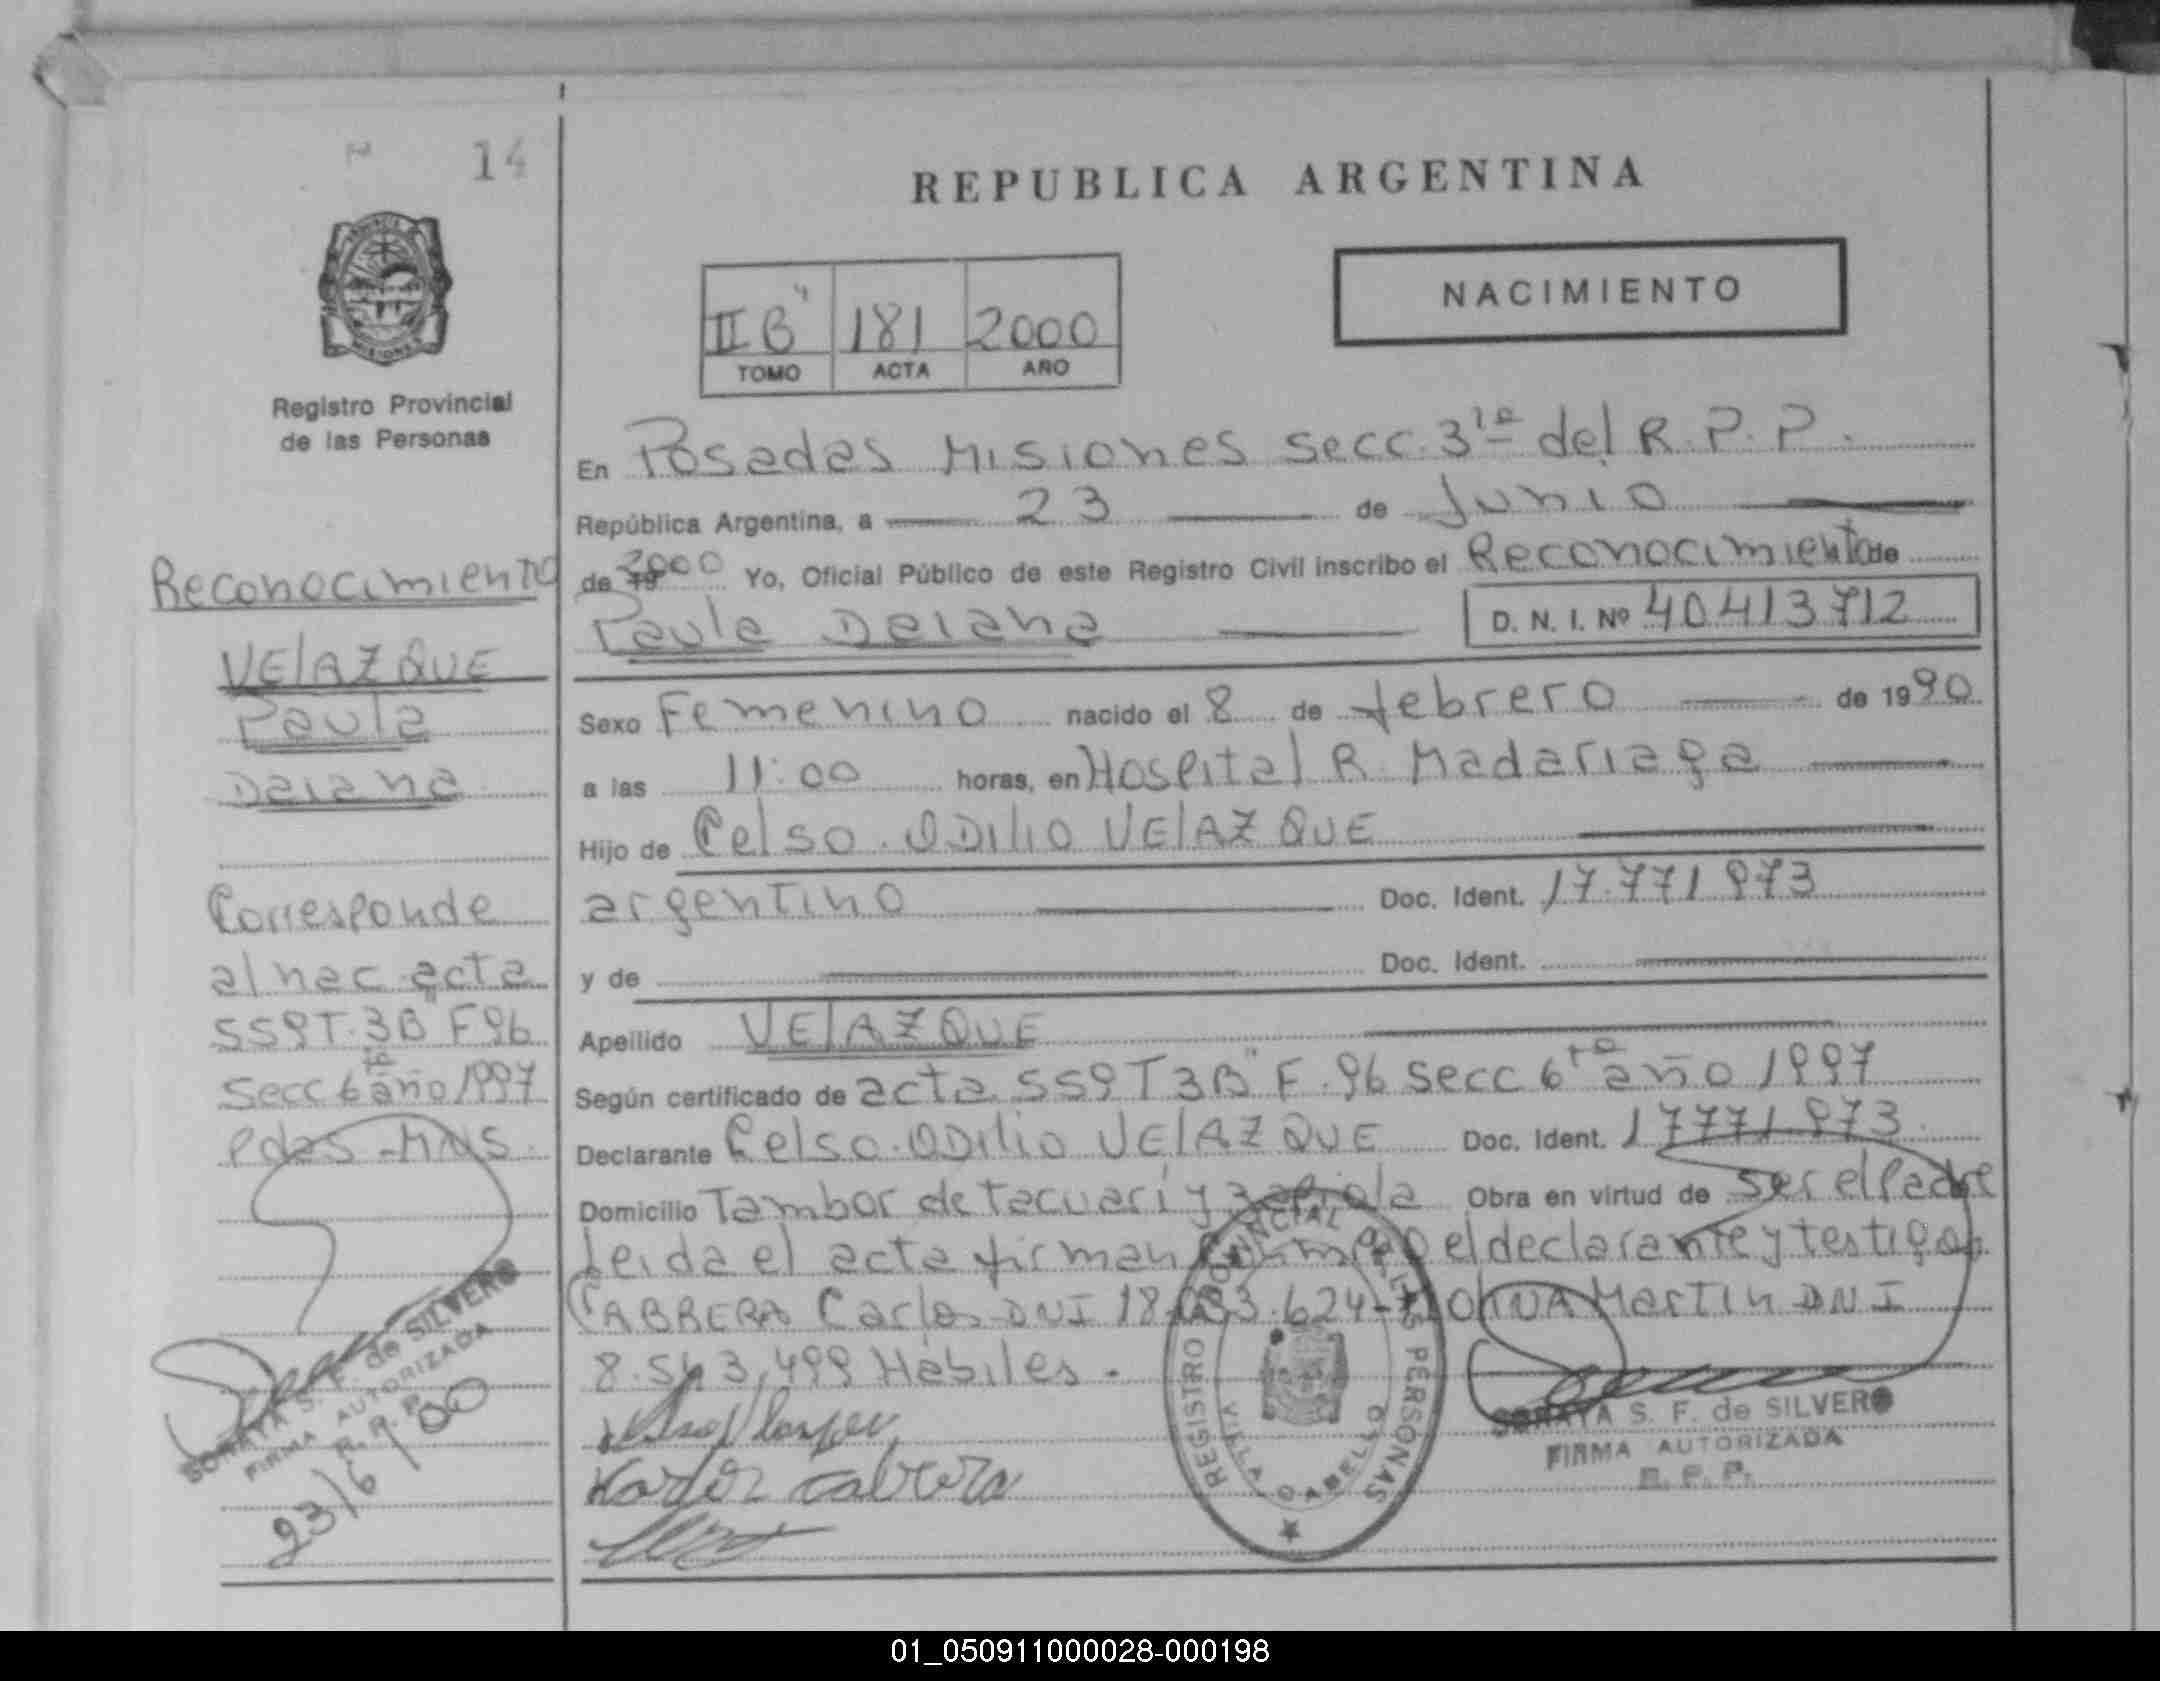 14
REPUBLICA ARGENTINA
NACIMIENTO
II B" 181 2000
TOMO ACTA AÑO
Registro Provincial
de las Personas
En Posadas Misiones secc. 3ra del R. P. P.
República Argentina, a 23 de Junio
de 19 2000 Yo, Oficial Público de este Registro Civil inscribo el Reconocimiento de
Paula Daiana D. N. I. Nº 40413712
Sexo Femenino nacido el 8 de febrero de 1990
a las 11:00 horas, en Hospital R. Madariaga
Hijo de Celso ODILIO VELAZQUE
argentino Doc. Ident. 17.771973
y de Doc. Ident.
Apellido VELAZQUE
Según certificado de acta 559 T 3B" F. 96 secc 6ta año 1997
Declarante Celso ODILIO VELAZQUE Doc. Ident. 17771.973
Domicilio Tambor de Tacuarí y Obra en virtud de ser el Padre
Leida el acta firman el declarante y testigos
CABRERA Carlos DNI Martin DNI
8.543.499 Hábiles.
Reconocimiento
VELAZQUE
Paula
Daiana
Corresponde
al nac acta
559 T. 3B" F 96
Secc 6ta año 1997
Pdas - MNS.
SORAYA S. F. de SILVERO
FIRMA AUTORIZADA
R. P. P.
23/6/00
Carlos Cabrera
REGISTRO PROVINCIAL DE LAS PERSONAS
VILLA CABELLO
SORAYA S. F. de SILVERO
FIRMA AUTORIZADA
R. P. P.
01_050911000028-000198